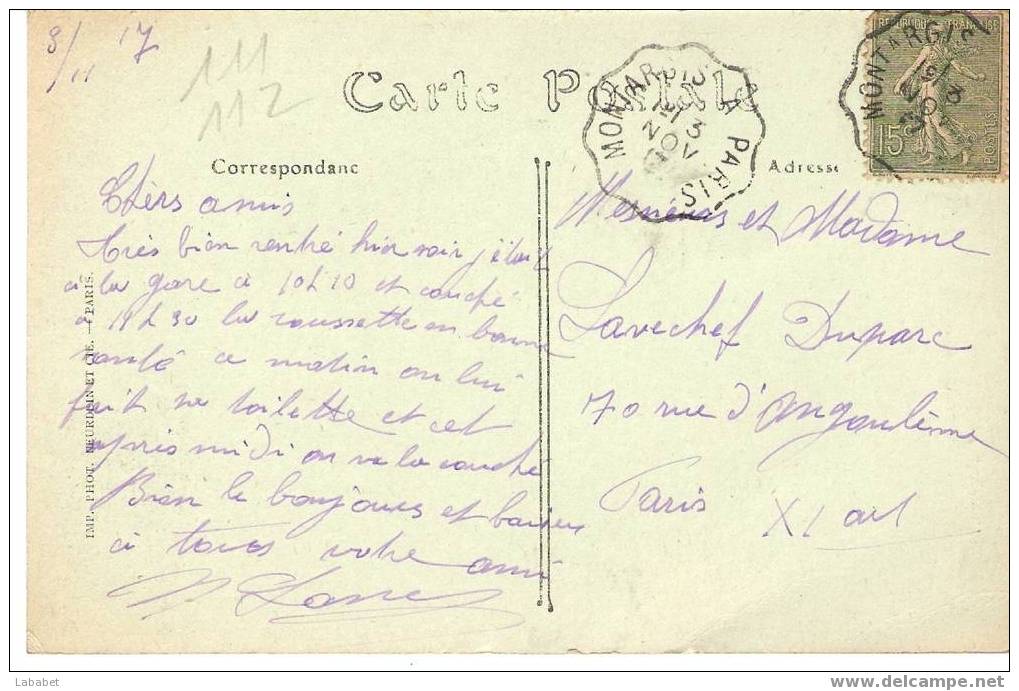 8/11 17
111
112
Carte Postale
MONTARGIS A PARIS
13
NOV
REPUBLIQUE FRANÇAISE
15c
POSTES
MONTARGIS
13
NOV
Correspondanc
Adresse
Chers amis
très bien rentré hier soir j'étais
a la gare à 10h10 et couché
a 11h30 la roussette en bonne
santé ce matin on lui
fait sa toilette et cet
après midi on va la couché
Bien le bonjours et baisers
à tous votre ami
Messieurs et Madame
Lavechef Duparc
70 rue d'Angoulème
Paris XI arr
IMP. PHOT. NEURDEIN ET CIE. — PARIS.
Lababet
www.delcampe.net